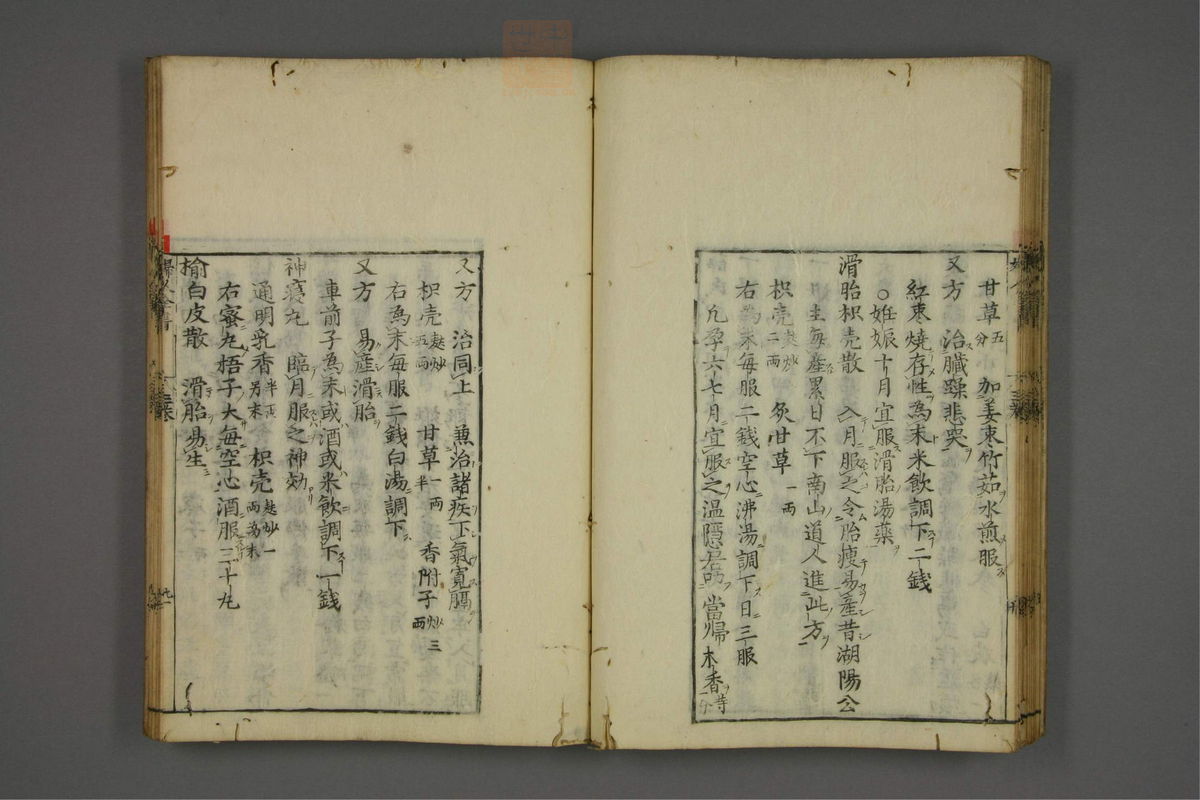 甘草五分 加姜枣竹茹水煎服
又方 治臓躁悲哭
紅枣燒存性為末米飲調下二錢
○妊娠十月宜服滑胎湯藥
滑胎枳壳散 入月服之令胎瘦易產昔湖陽公
主毎產累日不下南山道人進此方
枳壳麩炒二両 炙甘草一両
右為末毎服二錢空心沸湯調下日三服
凢孕六七月宜服之温隱居加當帰木香等分
又方 治同上 兼治諸疾下氣寬膈
枳壳麸炒五両 甘草一両半 香附子炒三両
右為末毎服二錢白湯調下
又方 易產滑胎
車前子為末或酒或米飲調下一錢
神寢丸 臨月服之神効
通明乳香半両另末 枳壳麸炒一両為末
右蜜丸梧子大毎空心酒服三十丸
榆白皮散 滑胎易生